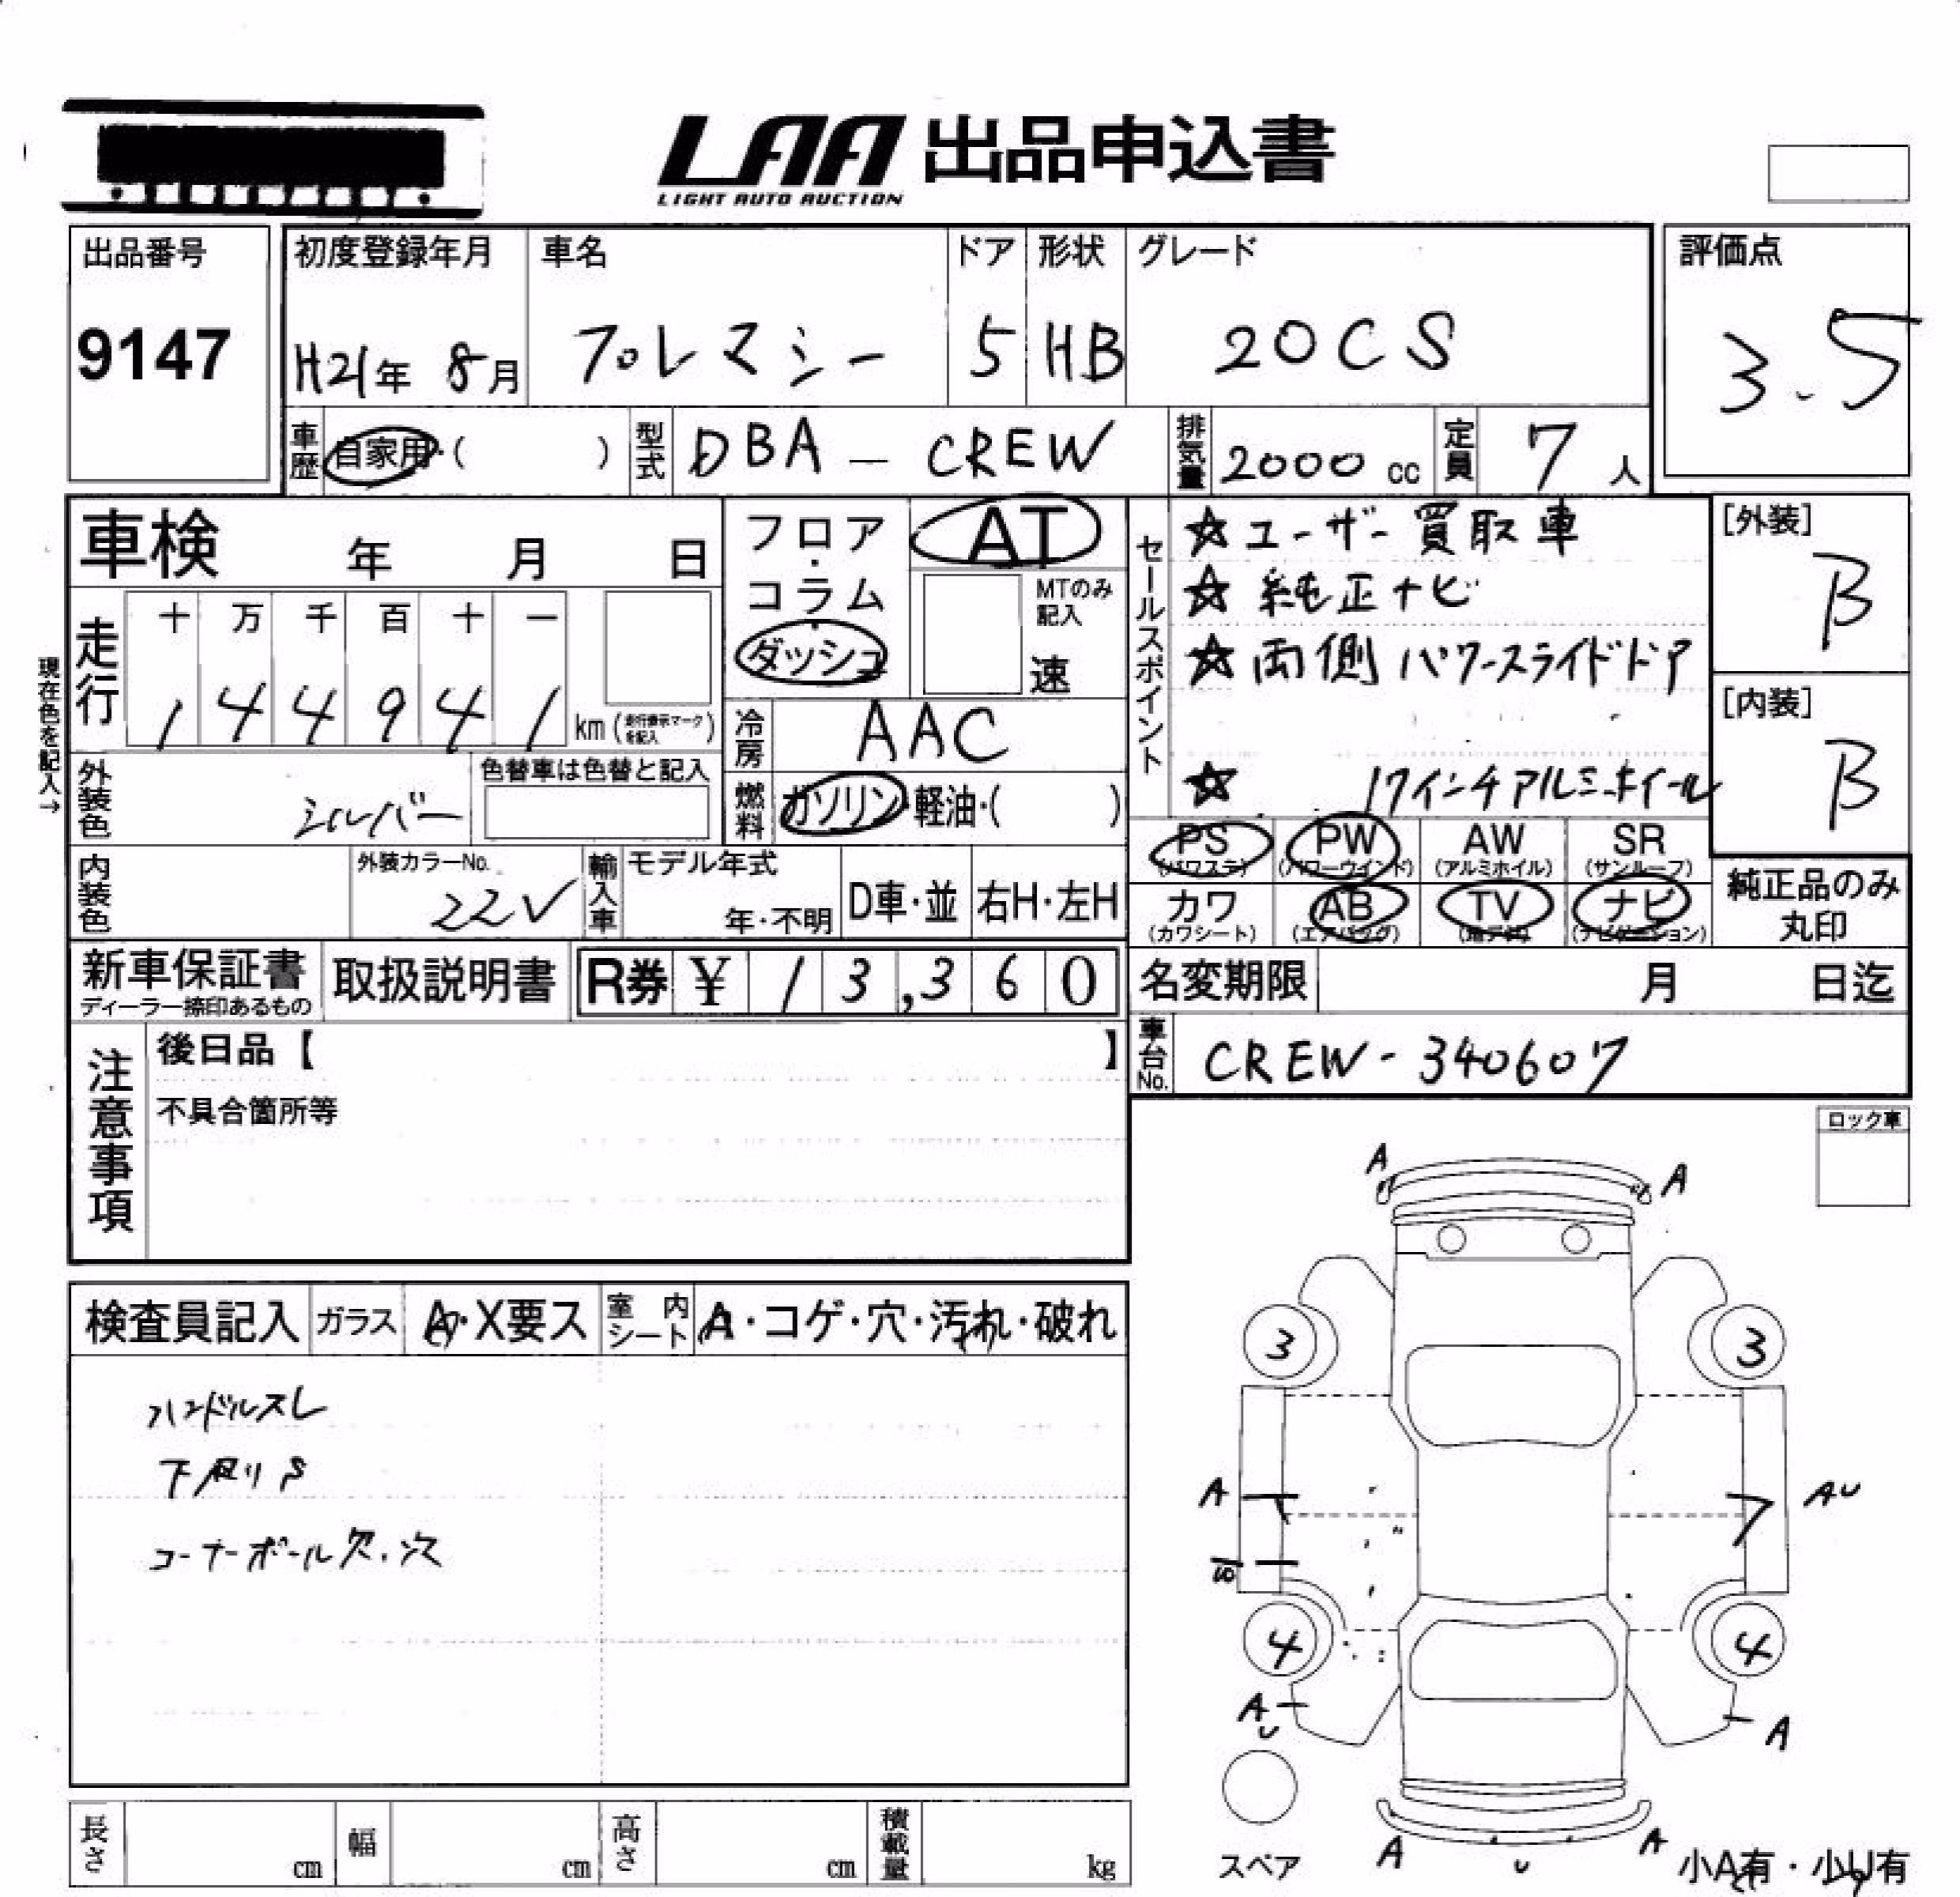 LAA 出品申込書
LIGHT AUTO AUCTION
出品番号
9147
初度登録年月
H21年 8月
車名
プレマシー
ドア
5
形状
HB
グレード
20CS
評価点
3.5
車歴
自家用・( )
型式
DBA - CREW
排気量
2000 cc
定員
7 人
車検 年 月 日
フロア・コラム
ダッシュ
AT
MTのみ記入
速
セールスポイント
☆ユーザー買取車
☆純正ナビ
☆両側パワースライドドア
☆ 17インチアルミホイール
[外装]
B
[内装]
B
現在色を記入→
走行
十 万 千 百 十 一
1 4 4 9 4 1 km (走行表示マークを記入)
冷房
AAC
外装色
シルバー
色替車は色替と記入
燃料
ガソリン・軽油・( )
PS (パワステ)
PW (パワーウインド)
AW (アルミホイル)
SR (サンルーフ)
カワ (カワシート)
AB (エアバッグ)
TV
ナビ (ナビゲーション)
純正品のみ丸印
内装色
外装カラーNo.
22V
輸入車
モデル年式
年・不明
D車・並
右H・左H
新車保証書
ディーラー捺印あるもの
取扱説明書
R券 ¥ 13,360
名変期限 月 日迄
車台No.
CREW-340607
注意事項
後日品【 】
不具合箇所等
ロック車
検査員記入
ガラス
A・X要ス
室内シート
A・コゲ・穴・汚れ・破れ
ハンドルスレ
下廻りS
コーナーポール欠
A
A
3
3
A
AU
4
4
A
U
A
A
U
A
スペア
小A有・小U有
長さ cm
幅 cm
高さ cm
積載量 kg